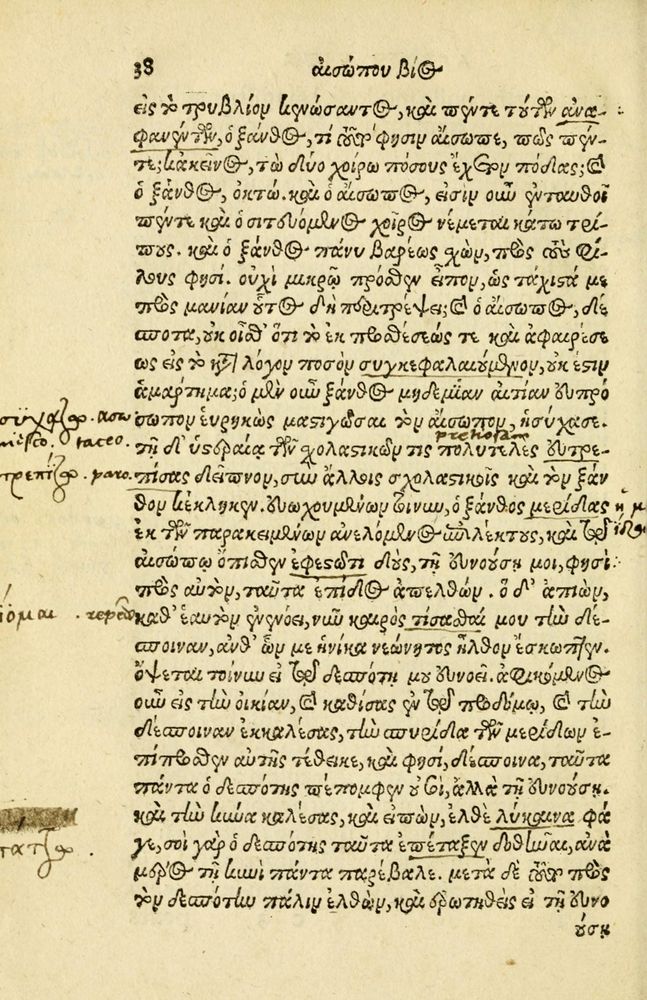 38 αἰσώπου βίος
εἰς τὸ τρυβλίον κενώσαντος, καὶ πέντε τούτων ἀνα-
φανέντων, ὁ ξάνθος, τί τοῦτο φησὶν αἴσωπε, πῶς πέν-
τε; κἀκεῖνος, τὼ δύο χοίρω πόσους ἔχετον πόδας; καὶ
ὁ ξάνθος, ὀκτώ. καὶ ὁ αἴσωπος, εἰσὶν οὖν ἐνταυθοῖ
πέντε καὶ ὁ σιτευόμενος χοῖρος νέμεται κάτω τρί-
πους. καὶ ὁ ξάνθος πάνυ βαρέως σχὼν, πρὸς τοὺς φί-
λους φησί. οὐχὶ μικρῷ πρόσθεν εἶπον, ὡς τάχιστά με
πρὸς μανίαν οὗτος δὴ περιτρέψει; καὶ ὁ αἴσωπος, δέ-
σποτα, οὐκ οἶσθ' ὅτι τὸ ἐκ προσθέσεώς τε καὶ ἀφαιρέσε
ως εἰς τὸ κατὰ λόγον ποσὸν συγκεφαλαιούμενον, οὐκ ἔστιν
ἁμάρτημα; ὁ μὲν οὖν ξάνθος μηδεμίαν αἰτίαν εὐπρό
σωπον εὑρηκὼς μαστιγῶσαι τὸν αἴσωπον, ἡσύχασε.
τῇ δ' ὑστεραίᾳ τῶν σχολαστικῶν τις πολυτελὲς εὐτρε-
πίσας δεῖπνον, σὺν ἄλλοις σχολαστικοῖς καὶ τὸν ξάν
θον κέκληκεν. εὐωχουμένων τοίνυν, ὁ ξάνθος μερίδας
ἐκ τῶν παρακειμένων ἀνελόμενος ἐκλέκτους, καὶ τῷ
αἰσώπῳ ὄπισθεν ἐφεστῶτι δοὺς, τῇ εὐνούσῃ μοι, φησὶ
πρὸς αὐτὸν, ταῦτα ἐπίδος ἀπελθών. ὁ δ' ἀπιὼν,
καθ' ἑαυτὸν ἐνενόει, νῦν καιρὸς τίσασθαί μου τὴν δέ-
σποιναν, ἀνθ' ὧν με ἡνίκα νεώνητος ἦλθον ἔσκωπτεν.
ὄψεται τοίνυν εἰ τῷ δεσπότῃ μου εὐνοεῖ. ἀφικόμενος
οὖν εἰς τὴν οἰκίαν, καὶ καθίσας ἐν τῷ προδόμῳ, καὶ τὴν
δέσποιναν ἐκκαλέσας, τὴν σπυρίδα τῶν μερίδων ἔ-
μπροσθεν αὐτῆς τέθεικε, καὶ φησὶ, δέσποινα, ταῦτα
πάντα ὁ δεσπότης πέπομφεν οὐ σοὶ, ἀλλὰ τῇ εὐνούσῃ.
καὶ τὴν κύνα καλέσας, καὶ εἰπὼν, ἐλθὲ λύκαινα φά
γε, σοὶ γὰρ ὁ δεσπότης ταῦτα ἐπέταξεν δοθῆναι, ἀνὰ
μέρος τῇ κυνὶ πάντα παρέβαλε. μετὰ δὲ τοῦτο πρὸς
τὸν δεσπότην πάλιν ἐλθὼν, καὶ ἐρωτηθεὶς εἰ τῇ εὐνο
ούσῃ
taceo.
paro.